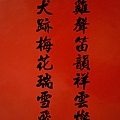 雞聲笛韻祥雲燦
犬跡梅花瑞雪飛